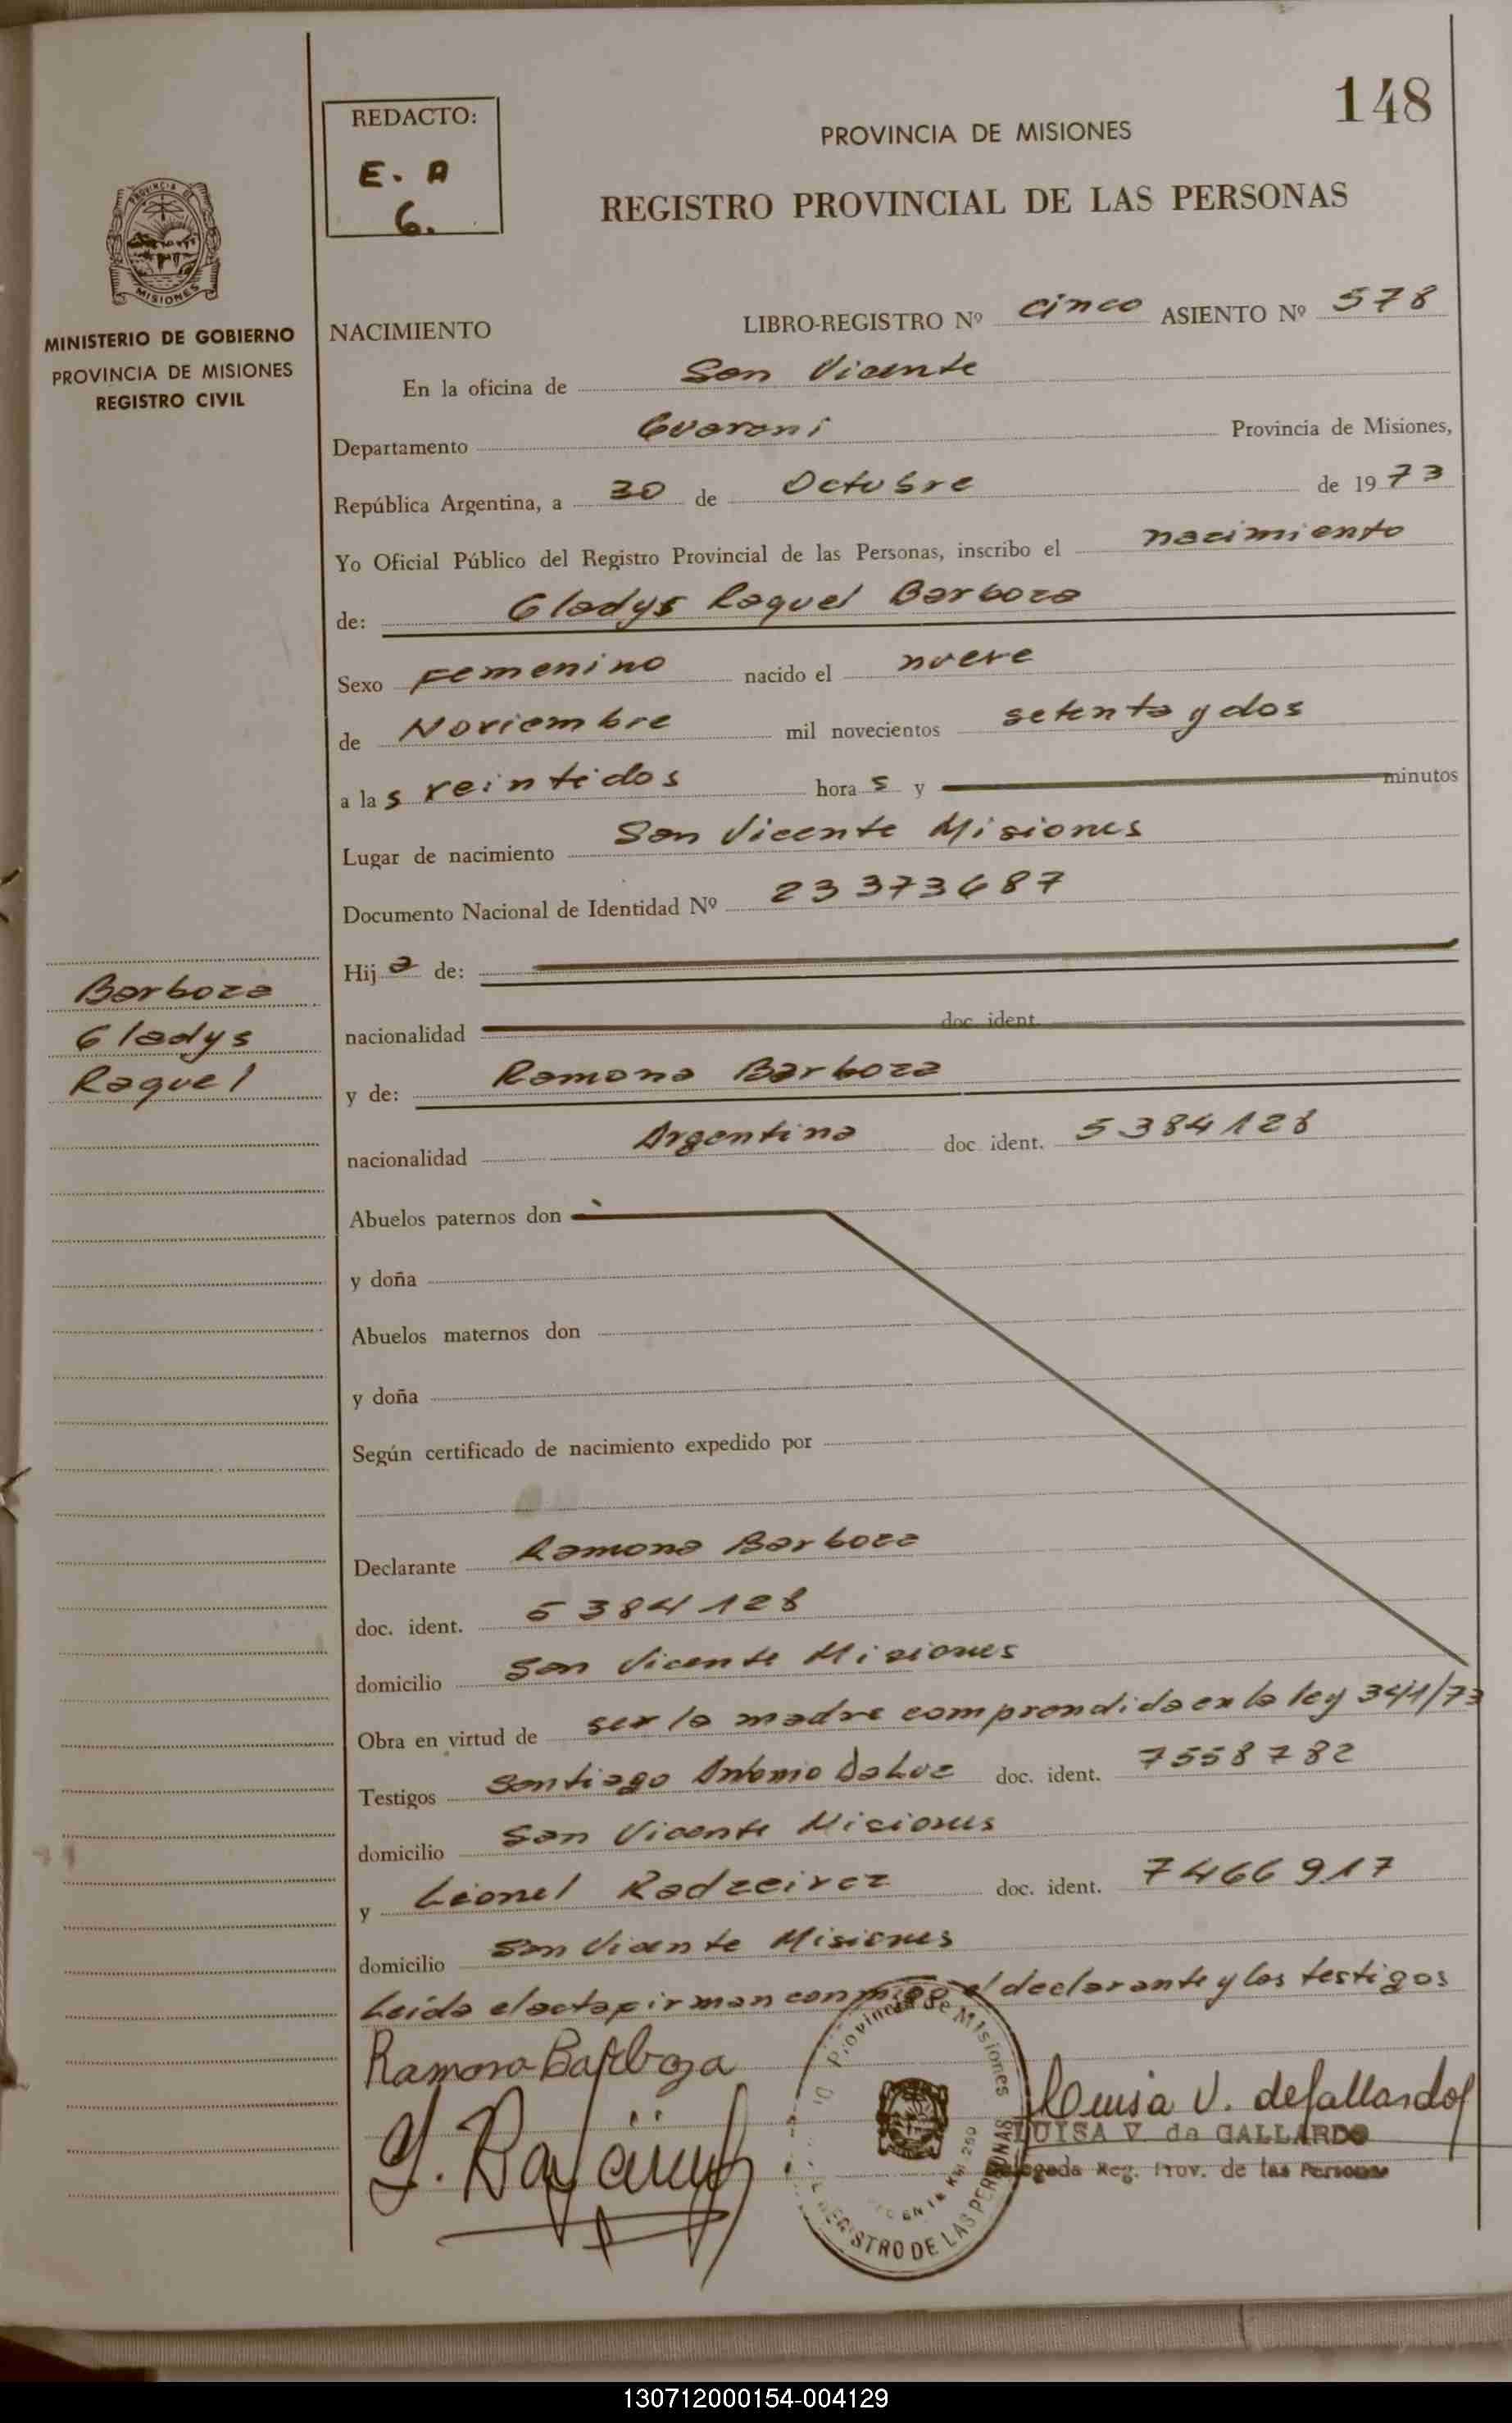 148
REDACTO:
E. A
G.
PROVINCIA DE MISIONES
REGISTRO PROVINCIAL DE LAS PERSONAS
MISIONES
MINISTERIO DE GOBIERNO
PROVINCIA DE MISIONES
REGISTRO CIVIL
NACIMIENTO LIBRO-REGISTRO Nº cinco ASIENTO Nº 578
En la oficina de San Vicente
Departamento Guarani Provincia de Misiones,
República Argentina, a 30 de Octubre de 1973
Yo Oficial Público del Registro Provincial de las Personas, inscribo el nacimiento
de: Gladys Raquel Barboza
Sexo Femenino nacido el nueve
de Noviembre mil novecientos setenta y dos
a las veintidos horas y minutos
Lugar de nacimiento San Vicente Misiones
Documento Nacional de Identidad Nº 23373687
Hija de:
nacionalidad doc ident.
y de: Ramona Barboza
nacionalidad Argentina doc ident. 5384128
Barboza
Gladys
Raquel
Abuelos paternos don
y doña
Abuelos maternos don
y doña
Según certificado de nacimiento expedido por
Declarante Ramona Barboza
doc. ident. 5384128
domicilio San Vicente Misiones
Obra en virtud de ser la madre comprendida en la ley 341/73
Testigos Santiago Antonio DaLuz doc. ident. 7558782
domicilio San Vicente Misiones
y Leonel Radzeivez doc. ident. 7466917
domicilio San Vicente Misiones
Leida el acta firman conmigo el declarante y los testigos
Ramona Barboza
Provincia de Misiones
REGISTRO DE LAS PERSONAS
Luisa V. de Gallardo
LUISA V. de GALLARDO
Delegada Reg. Prov. de las Personas
130712000154-004129